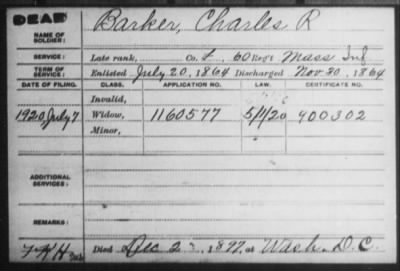 DEAD
NAME OF SOLDIER: Barker, Charles R
SERVICE: Late rank, Co. 60 Reg't Mass Inf
TERM OF SERVICE: Enlisted July 20, 1864 Discharged Nov 30, 1864
DATE OF FILING. CLASS. APPLICATION NO. LAW. CERTIFICATE NO.
Invalid,
1920 July 7 Widow, 1160577 5/1/20 900302
Minor,
ADDITIONAL SERVICES:
REMARKS:
Died Dec 2 1897, at Wash. D.C.